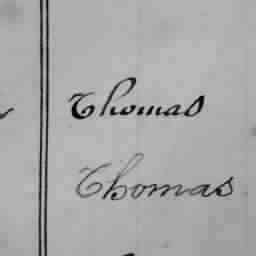 Thomas
Thomas